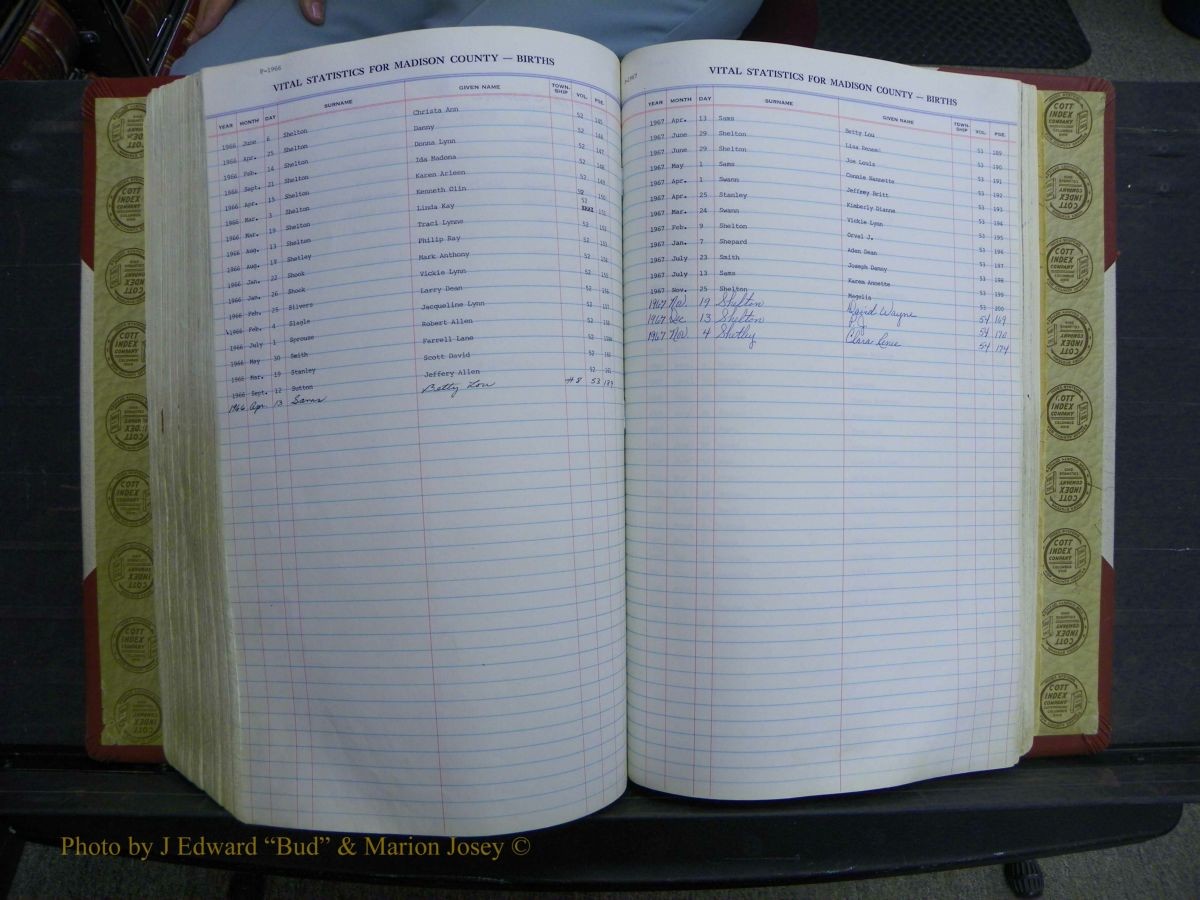 P-1966
VITAL STATISTICS FOR MADISON COUNTY — BIRTHS
YEAR MONTH DAY SURNAME GIVEN NAME TOWN-SHIP VOL. PGE.
1966 June 6 Shelton Christa Ann 52 145
1966 Apr. 25 Shelton Danny 52 146
1966 Feb. 14 Shelton Donna Lynn 52 147
1966 Sept. 21 Shelton Ida Madona 52 148
1966 Apr. 15 Shelton Karen Arleen 52 149
1966 Mar. 3 Shelton Kenneth Olin 52 150
1966 Mar. 19 Shelton Linda Kay 52 151
1966 Aug. 13 Shelton Traci Lynne 52 152
1966 Aug. 18 Shetley Philip Ray 52
1966 Jan. 22 Shook Mark Anthony 52 154
1966 Jan. 26 Shook Vickie Lynn 52 155
1966 Feb. 25 Silvers Larry Dean 52 156
1966 Feb. 4 Slagle Jacqueline Lynn 52 157
1966 July 1 Sprouse Robert Allen 52 158
1966 May 30 Smith Farrell Lane 52
1966 Mar. 19 Stanley Scott David 52
1966 Sept. 12 Sutton Jeffery Allen 52 161
1966 Apr. 13 Sams Betty Lou #8 53 189
1967
VITAL STATISTICS FOR MADISON COUNTY — BIRTHS
YEAR MONTH DAY SURNAME GIVEN NAME TOWN-SHIP VOL. PGE.
1967 Apr. 13 Sams Betty Lou 53 189
1967 June 29 Shelton Lisa Reneai 53 190
1967 June 29 Shelton Joe Louis 53 191
1967 May 1 Sams Connie Nannette 53 192
1967 Apr. 1 Swann Jeffrey Britt 53 193
1967 Apr. 25 Stanley Kimberly Dianne 53 194
1967 Mar. 24 Swann Vickie Lynn 53 195
1967 Feb. 9 Shelton Orvel J. 53 196
1967 Jan. 7 Shepard Aden Dean 53 197
1967 July 23 Smith Joseph Danny 53 198
1967 July 13 Sams Karen Annette 53 199
1967 Nov. 25 Shelton Magelia 53 200
1967 Nov. 19 Shelton David Wayne 54 169
1967 Dec 13 Shelton 54 170
1967 Nov. 4 Shetley Clara Renee 54 174
COTT INDEX COMPANY COLUMBUS OHIO
Photo by J Edward “Bud” & Marion Josey ©